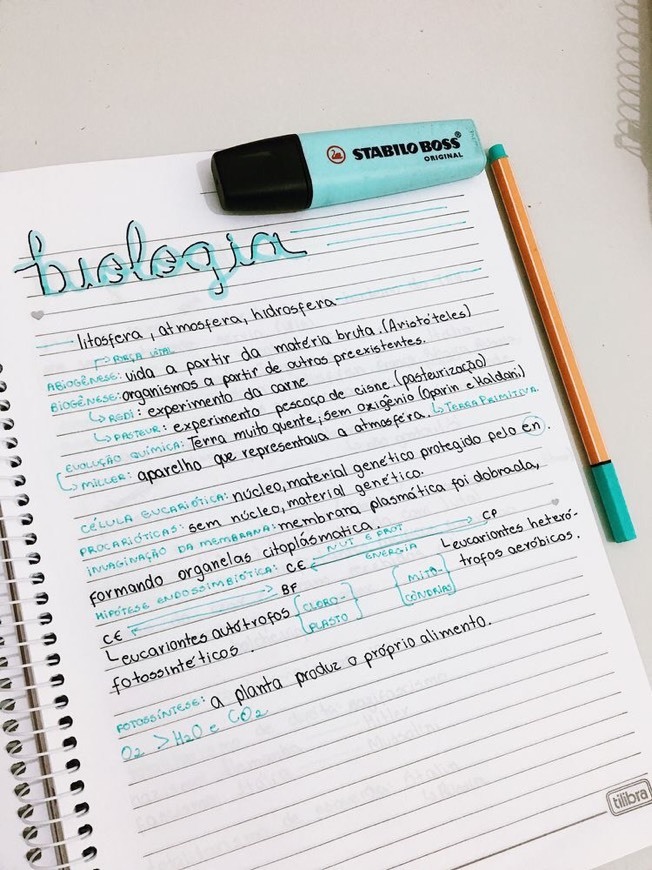 STABILO BOSS
ORIGINAL
biologia
litosfera, atmosfera, hidrosfera
FORÇA VITAL
ABIOGÊNESE: vida a partir da matéria bruta. (Aristóteles)
BIOGÊNESE: organismos a partir de outros preexistentes.
REDI: experimento da carne
PASTEUR: experimento pescoço de cisne. (pasteurização)
EVOLUÇÃO QUÍMICA: Terra muito quente, sem oxigênio (Oparin e Haldani)
TERRA PRIMITIVA.
MILLER: aparelho que representava a atmosfera.
CÉLULA EUCARIÓTICA: núcleo, material genético protegido pelo en.
PROCARIÓTICAS: sem núcleo, material genético.
INVAGINAÇÃO DA MEMBRANA: membrara plasmática foi dobrada,
formando organelas citoplásmatica.
HIPÓTESE ENDOSSIMBIÓTICA: CE NUT E PROT ENERGIA CP
eucariontes heteró-
trofos aeróbicos.
MITO-
CÔNDRIAS
CE BF
eucariontes autótrofos
fotossintéticos.
CLORO-
PLASTO
FOTOSSÍNTESE: a planta produz o próprio alimento.
O2 > H2O e CO2
tilibra